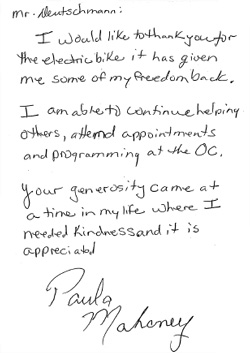 Mr. Deutschmann:
I would like to thank you for
the electric bike it has given
me some of my freedom back.
I am able to continue helping
others, attend appointments
and programming at the OC.
Your generosity came at
a time in my life where I
needed kindness and it is
appreciated
Paula
Mahoney